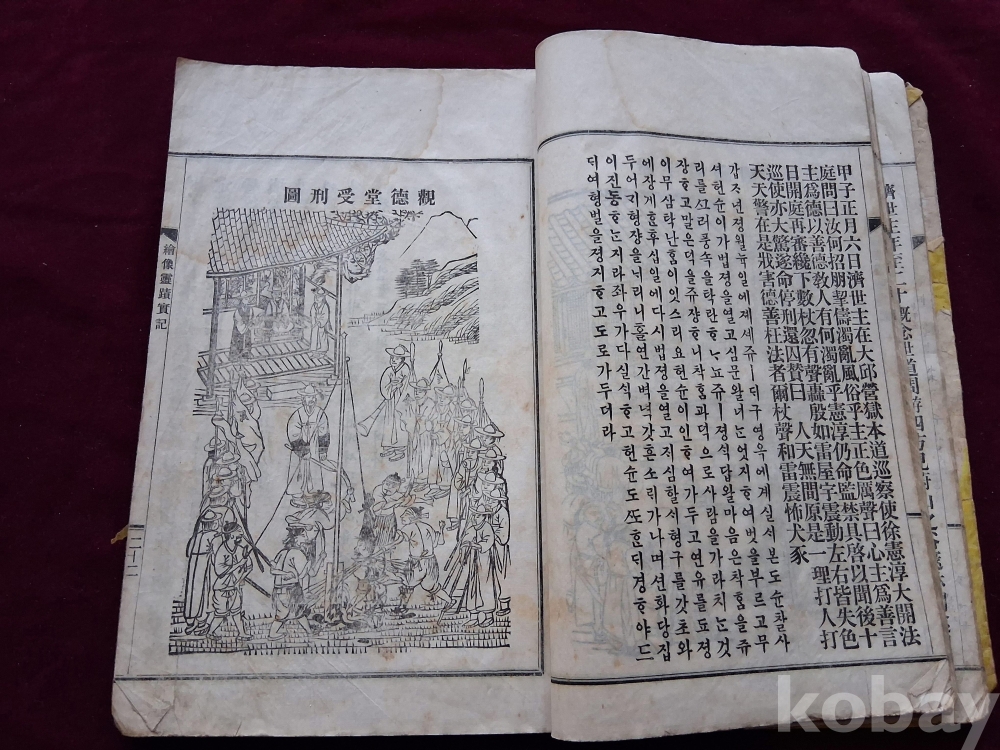 甲子正月六日濟世主在大邱營獄本道巡察使徐憲淳大開法
庭問曰汝何招朋挈儔濁亂風俗乎主正色厲聲曰心主爲善言
主爲德以善德敎人有何濁亂乎憲淳仍命監禁具啓以聞後十
日開庭再審纔下數杖忽有聲轟殷如雷屋宇震動左右皆失色
巡使亦大驚遂命停刑還囚贊曰 人天無間原是一理打人打
天天警在是戕害德善枉法者爾杖聲和雷震怖犬豕
갑ᄌᆞ년졍월뉵일에졔세쥬ㅣ더구영옥에계실ᄉᆡ본도순찰사
셔헌순이가법졍을열고심문왈너ᄂᆞᆫ엇지ᄒᆞ여벗을부르고무
리를ᄭᅳ러풍속을탁란ᄒᆞᄂᆞ뇨쥬ㅣ졍ᄉᆡᆨ답왈마음은착홈을쥬
장ᄒᆞ고말은덕을쥬쟝ᄒᆞ니착홈과덕으로사람을가라치ᄂᆞᆫ것
이무삼탁난홈이잇스리요헌순이인ᄒᆞ여가두고연유를됴졍
에장계ᄒᆞ후십일에다시법졍을열고ᄌᆡ심할ᄉᆡ형구를갓초와
두어ᄀᆡ형쟝을ᄂᆡ리니홀연간벽녁갓흔소ᄅᆡ가나며션화당집
이진동ᄒᆞᄂᆞᆫ지라좌우가다실ᄉᆡᆨᄒᆞ고헌순도ᄯᅩᄒᆞᆫ더경ᄒᆞ야드
ᄃᆡ여형벌을졍지ᄒᆞ고도로가두더라
觀德堂受刑圖
繪像靈蹟實記
二十二
kobay